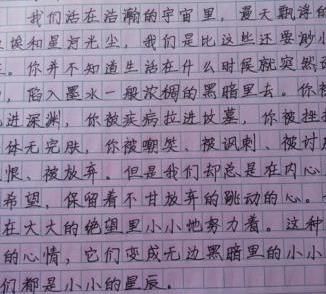 我们活在浩瀚的宇宙里，漫天飘浮的
尘埃和星河光尘，我们是比这些还要渺小
。你并不知道生活在什么时候就突然
，陷入墨水一般浓稠的黑暗里去。你被
进深渊，你被疾病拉进坟墓，你被挫折
体无完肤，你被嘲笑、被讽刺、被讨
恨、被放弃。但是我们却总是在内心
希望，保留着不甘放弃的跳动的心。
在大大的绝望里小小地努力着。这种
的心情，它们变成无边黑暗里的小小
们都是小小的星辰。